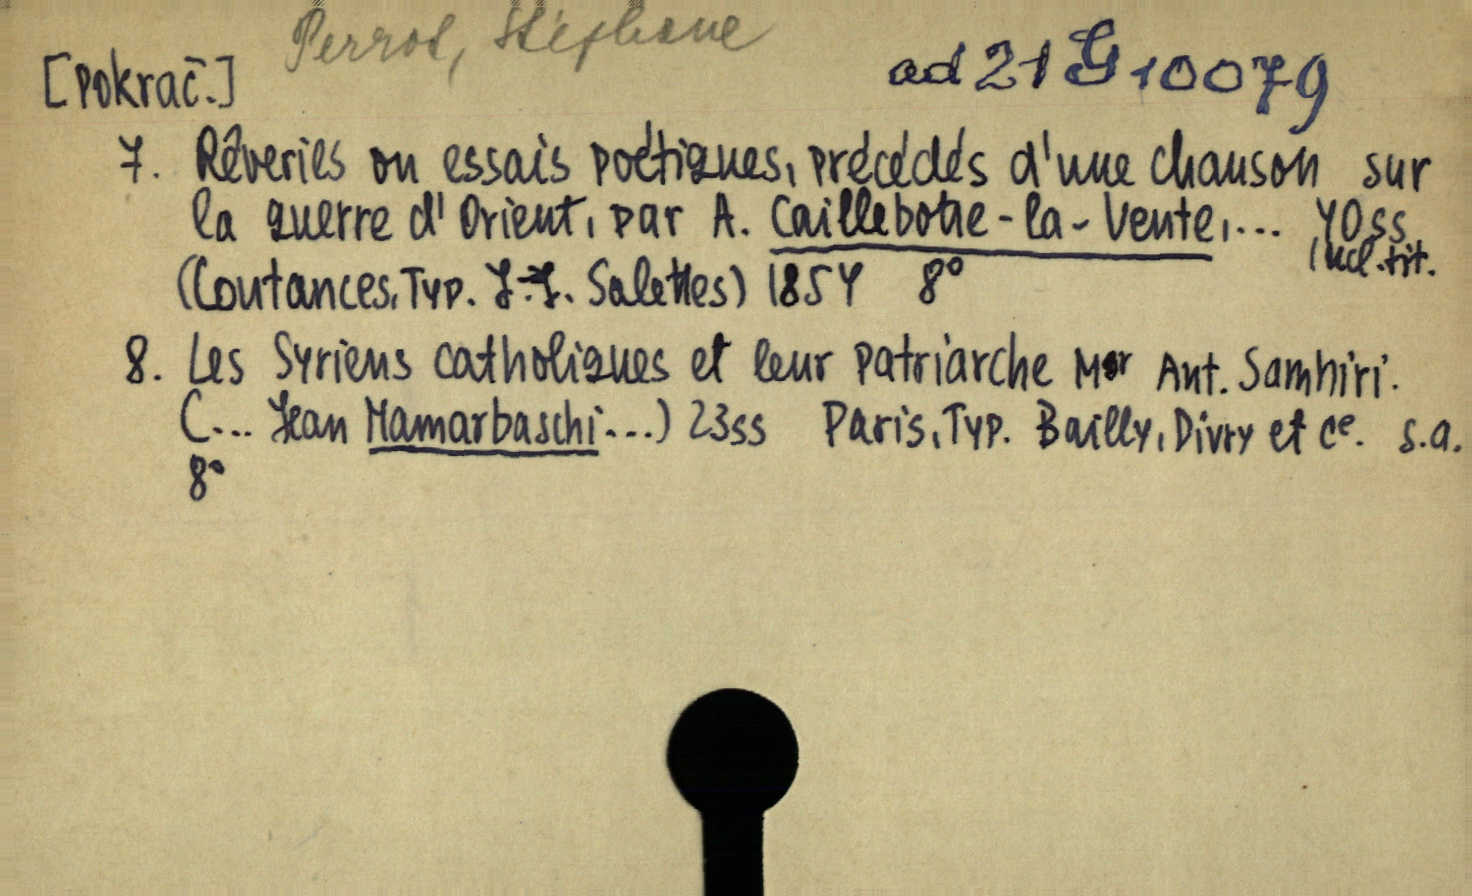 Perrot, Stéphane
[Pokrač.] ad 21 G 10079
7. Rêveries ou essais poétiques, précédés d'une chanson sur
la guerre d'Orient, par A. Caillebotte-la-Vente,... 40ss
incl. tit.
(Coutances, Typ. J.-J. Salettes) 1854 8°
8. Les Syriens catholiques et leur patriarche Mgr Ant. Samhiri.
(... Jean Mamarbaschi...) 23ss Paris, Typ. Bailly, Divry et ce. s.a.
8°